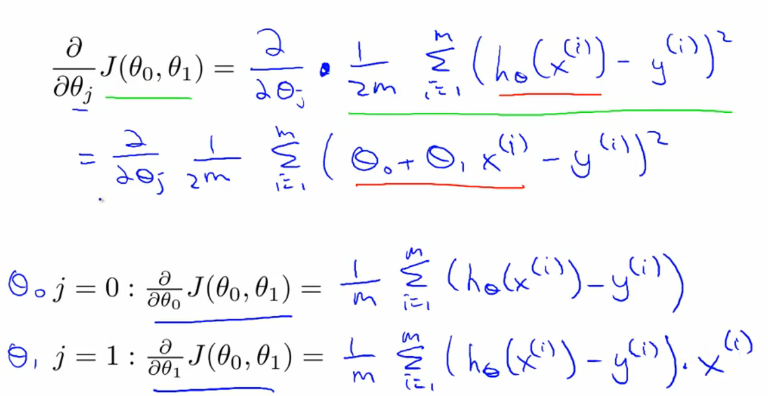 ∂/∂θj J(θ0, θ1) = ∂/∂θj · 1/2m Σ_{i=1}^{m} (hθ(x^(i)) − y^(i))²
= ∂/∂θj 1/2m Σ_{i=1}^{m} (θ0 + θ1 x^(i) − y^(i))²
θ0 j = 0 : ∂/∂θ0 J(θ0, θ1) = 1/m Σ_{i=1}^{m} (hθ(x^(i)) − y^(i))
θ1 j = 1 : ∂/∂θ1 J(θ0, θ1) = 1/m Σ_{i=1}^{m} (hθ(x^(i)) − y^(i)) · x^(i)